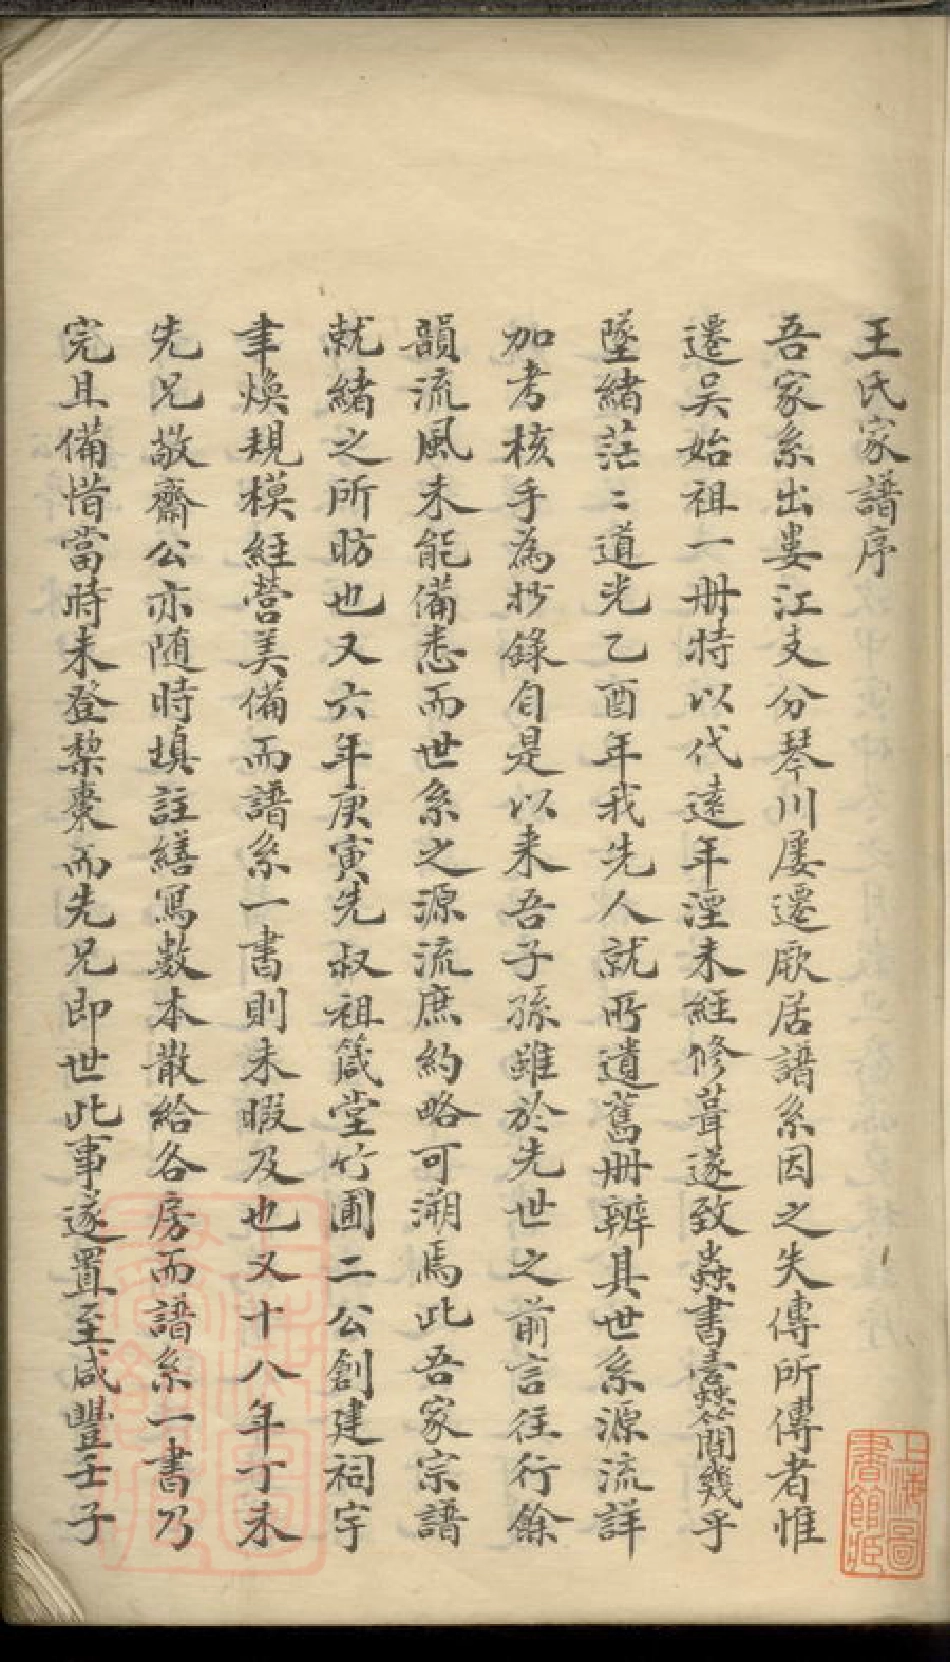 王氏家譜序
吾家系出婁江支分琴川屢遷厥居譜系因之失傳所傳者惟
遷吳始祖一册特以代遠年湮未經修葺遂致蟲書蠹簡幾乎
墜緒茫〻道光乙酉年我先人就所遺舊册辨其世系源流詳
加考核手為抄錄自是以来吾子孫雖於先世之前言往行餘
韻流風未能備悉而世系之源流庶約略可溯焉此吾家宗譜
就緒之所昉也又六年庚寅先叔祖箴堂竹圃二公創建祠宇
聿煥規模經營美備而譜系一書則未暇及也又十八年丁未
先兄敬齋公亦随時填註繕寫數本散給各房而譜系一書乃
完且備惜當時未登棃棗而先兄即世此事遂置至咸豐壬子
上海圖書館藏